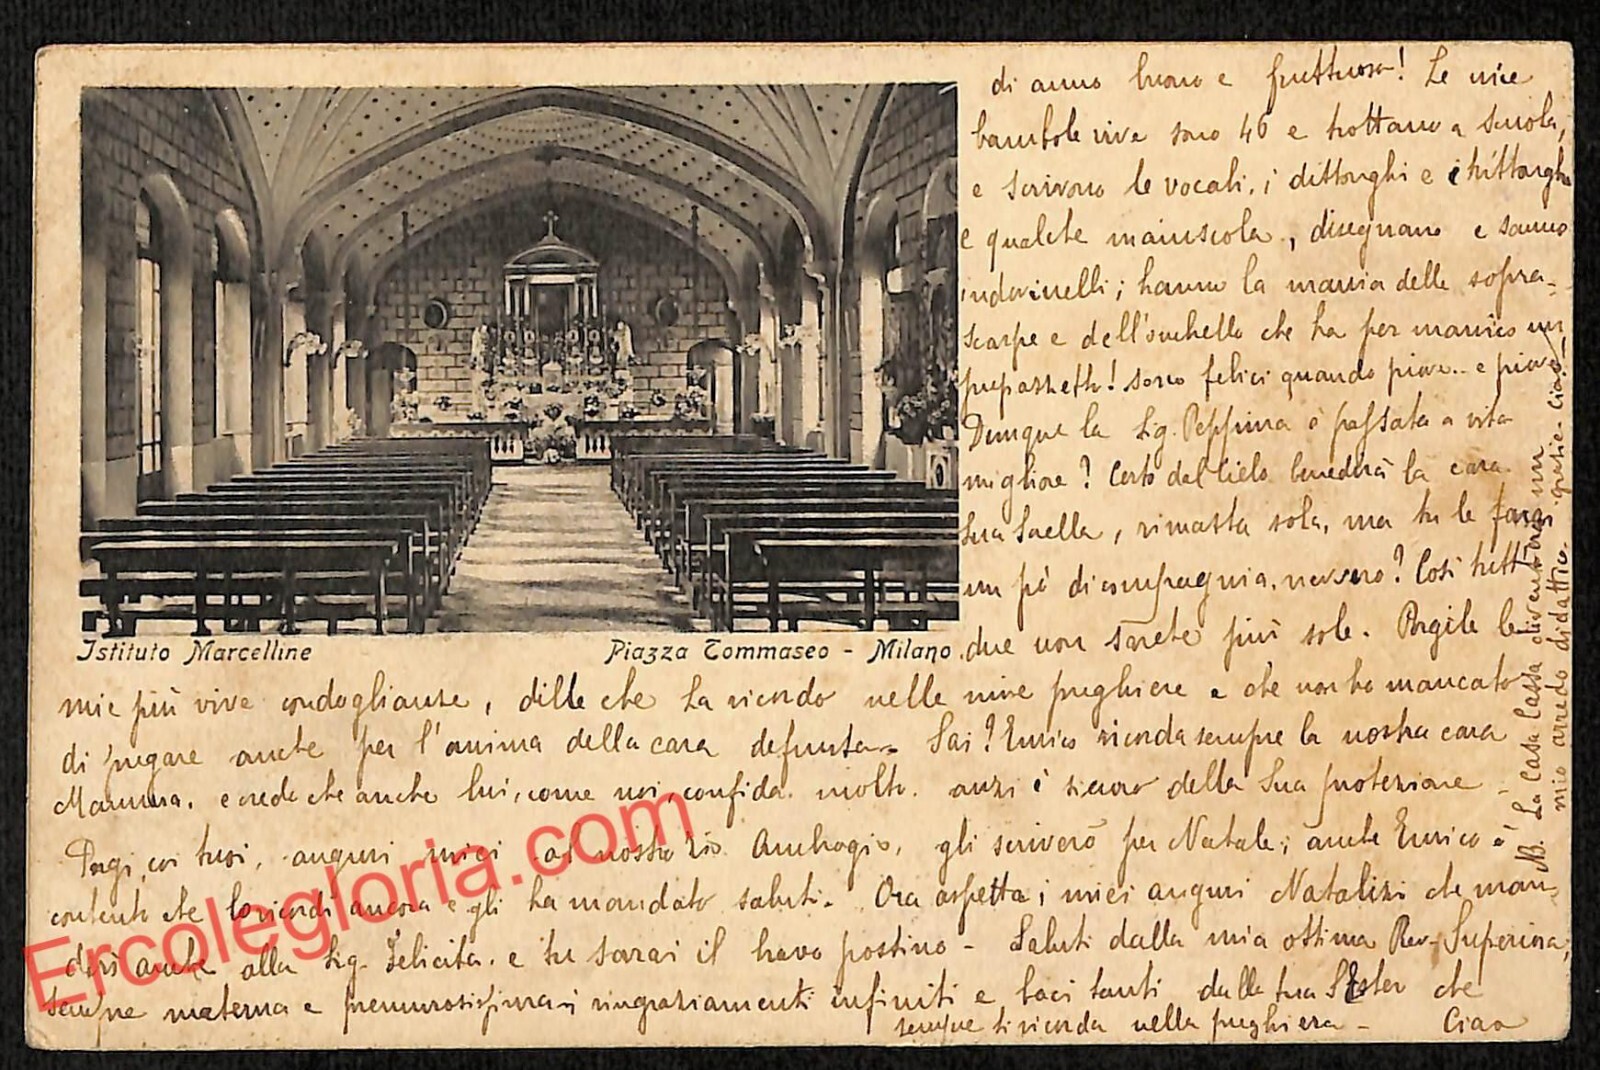 di anno buono e fruttuoso! Le mie
bambole vive sono 46 e trottano a scuola,
e scrivono le vocali, i dittonghi e i trittonghi
e qualche maiuscola, disegnano e sanno
indovinelli; hanno la mania delle sopra-
scarpe e dell'ombrello che ha per manico un
pupazzetto! sono felici quando piove.. e piove
Dunque la Sig. Peppina è passata a vita
migliore? Certo dal Cielo benedirà la cara
Sua Sorella, rimasta sola, ma tu le farai
un pò di compagnia, nevvero? Così tutt
due non sarete più sole. Porgile le
Istituto Marcelline
Piazza Tommaseo - Milano
mie più vive condoglianze, dille che la ricordo nelle mie preghiere e che non ho mancato
di pregare anche per l'anima della cara defunta. Sai? Enrico ricorda sempre la nostra cara
Mamma, e credo che anche lui, come noi, confida molto, anzi è sicuro della Sua protezione -
Porgi, coi tuoi, auguri miei al nostro Zio Ambrogio, gli scriverò per Natale; anche Enrico è
contento che lo ricordi ancora e gli ha mandato saluti. Ora aspetta i miei auguri Natalizi che man-
derò anche alla Sig. Felicita, e tu sarai il bravo postino - Saluti dalla mia ottima Rev. Superiora,
sempre materna e premurosissima; ringraziamenti infiniti e baci tanti dalla tua Ester che
sempre ti ricorda nella preghiera - Ciao
NB. La Casa Cassa diventerà un
mio arredo didattico. grazie. Ciao
Ercolegloria.com